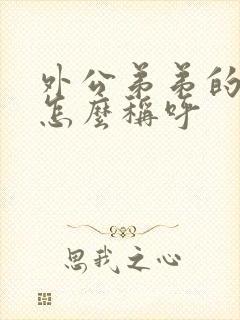 外公弟弟的
怎麼稱呼
思我之心